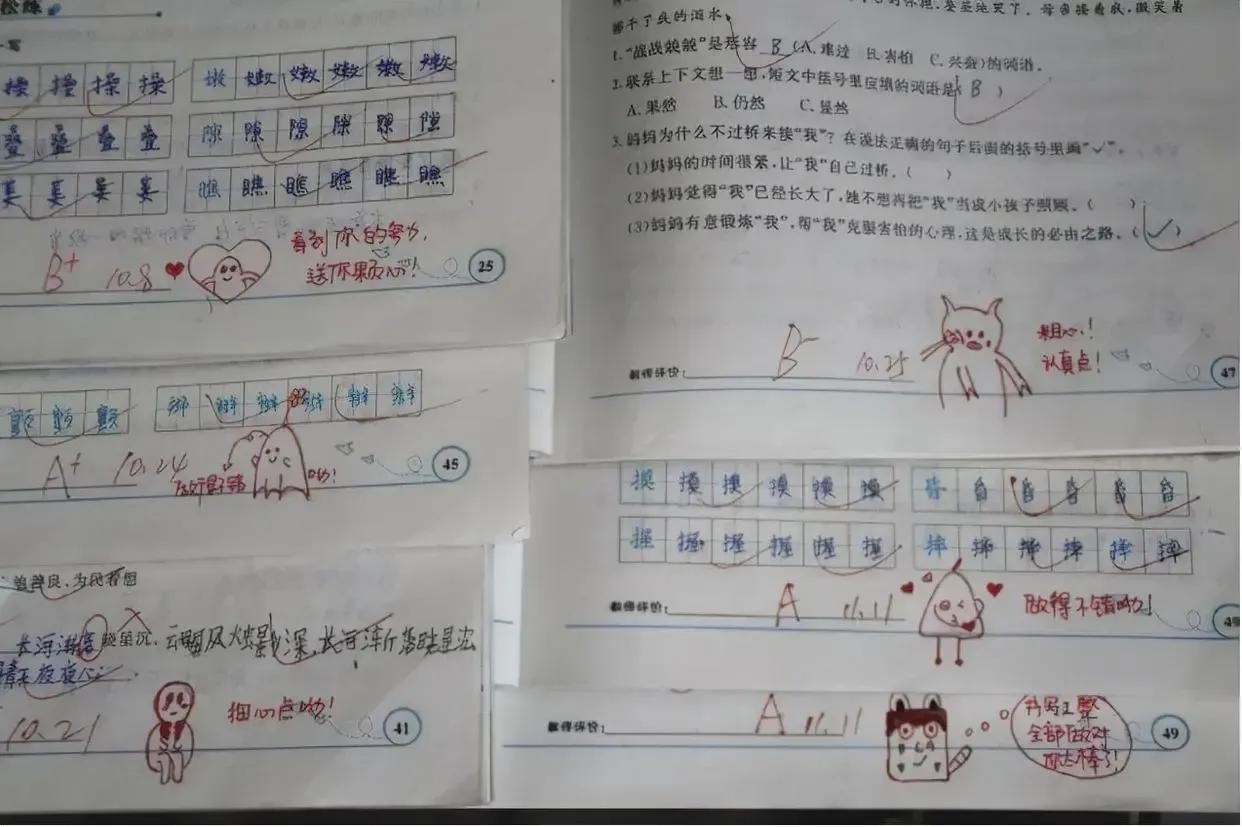 一写
操 操 操 操
嫩 嫩 嫩 嫩 嫩 嫩
叠 叠 叠 叠
隙 隙 隙 隙 隙 隙
瞧 瞧 瞧 瞧 瞧 瞧
B+ 10.8
看到你的努力,
送你颗心!
25
擦干了头的泪水。
1.“战战兢兢”是形容 B (A.难过 B.害怕 C.兴奋)的词语。
2.联系上下文想一想,短文中括号里应填的词语是( B )
A.果然 B.仍然 C.显然
3.妈妈为什么不过桥来接“我”?在说法正确的句子后面的括号里画“✓”。
(1)妈妈的时间很紧,让“我”自己过桥。( )
(2)妈妈觉得“我”已经长大了,她不想再把“我”当成小孩子照顾。( )
(3)妈妈有意锻炼“我”,帮“我”克服害怕的心理,这是成长的必由之路。(✓)
教师评价:
B- 10.25
粗心!
认真点!
47
颤 颤 颤
A+ 10.24
哟!
45
摸 摸 摸 摸 摸 摸
握 握 握 握 握 握
摔 摔 摔 摔 摔 摔
教师评价: A 11.11
做得不错哟!
长河渐落晓星沉,云母屏风烛影深,长河渐落晓星沉
青天夜夜心
10.21
细心点哟!
41
教师评价: A 11.11
书写工整
全部做对
你太棒了!
49